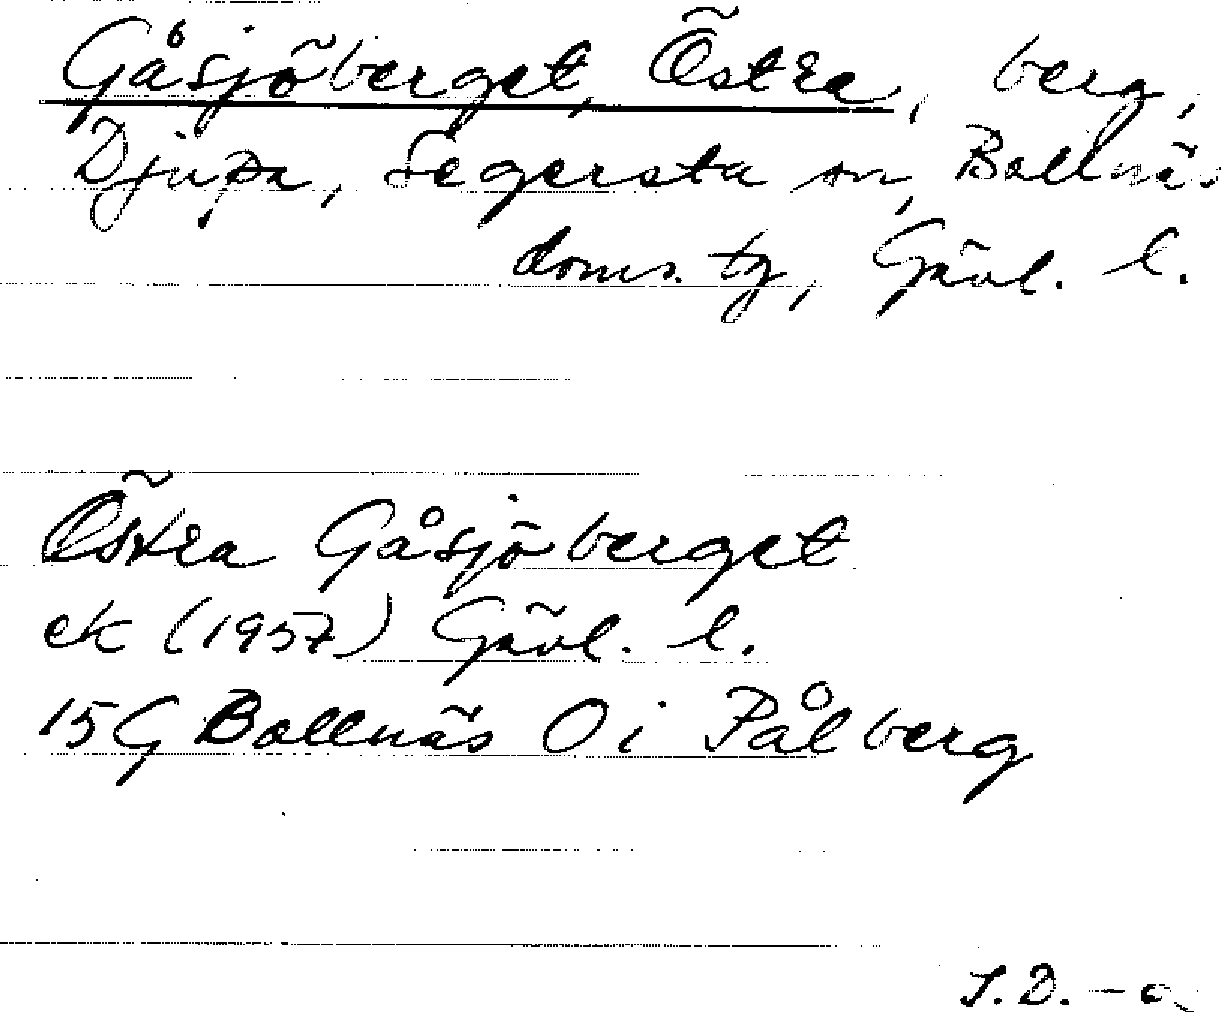 Gåsjöberget, Östra, berg,
Djupa, Segersta sn, Bollnäs
doms. tg, Gävl. l.
Östra Gåsjöberget
ek (1957) Gävl. l.
15G Bollnäs 0i Pålberg
S.D.